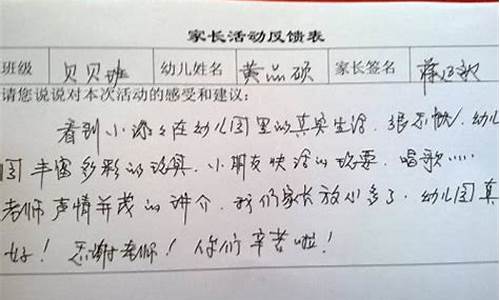 家长活动反馈表
班级 贝贝班 幼儿姓名 黄品硕 家长签名
请您说说对本次活动的感受和建议:
看到小 在幼儿园里的真实生活.很 .幼儿
园丰富多彩的 .小朋友快 的 .唱歌……
老师声情并茂的讲介.我们家长放心多了.幼儿园真
好!感谢老师!你们辛苦啦!